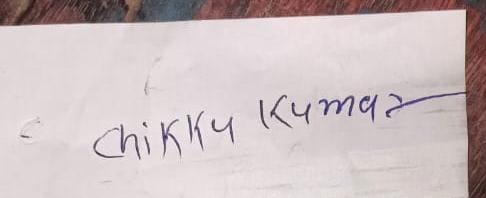 Chikky Kymar